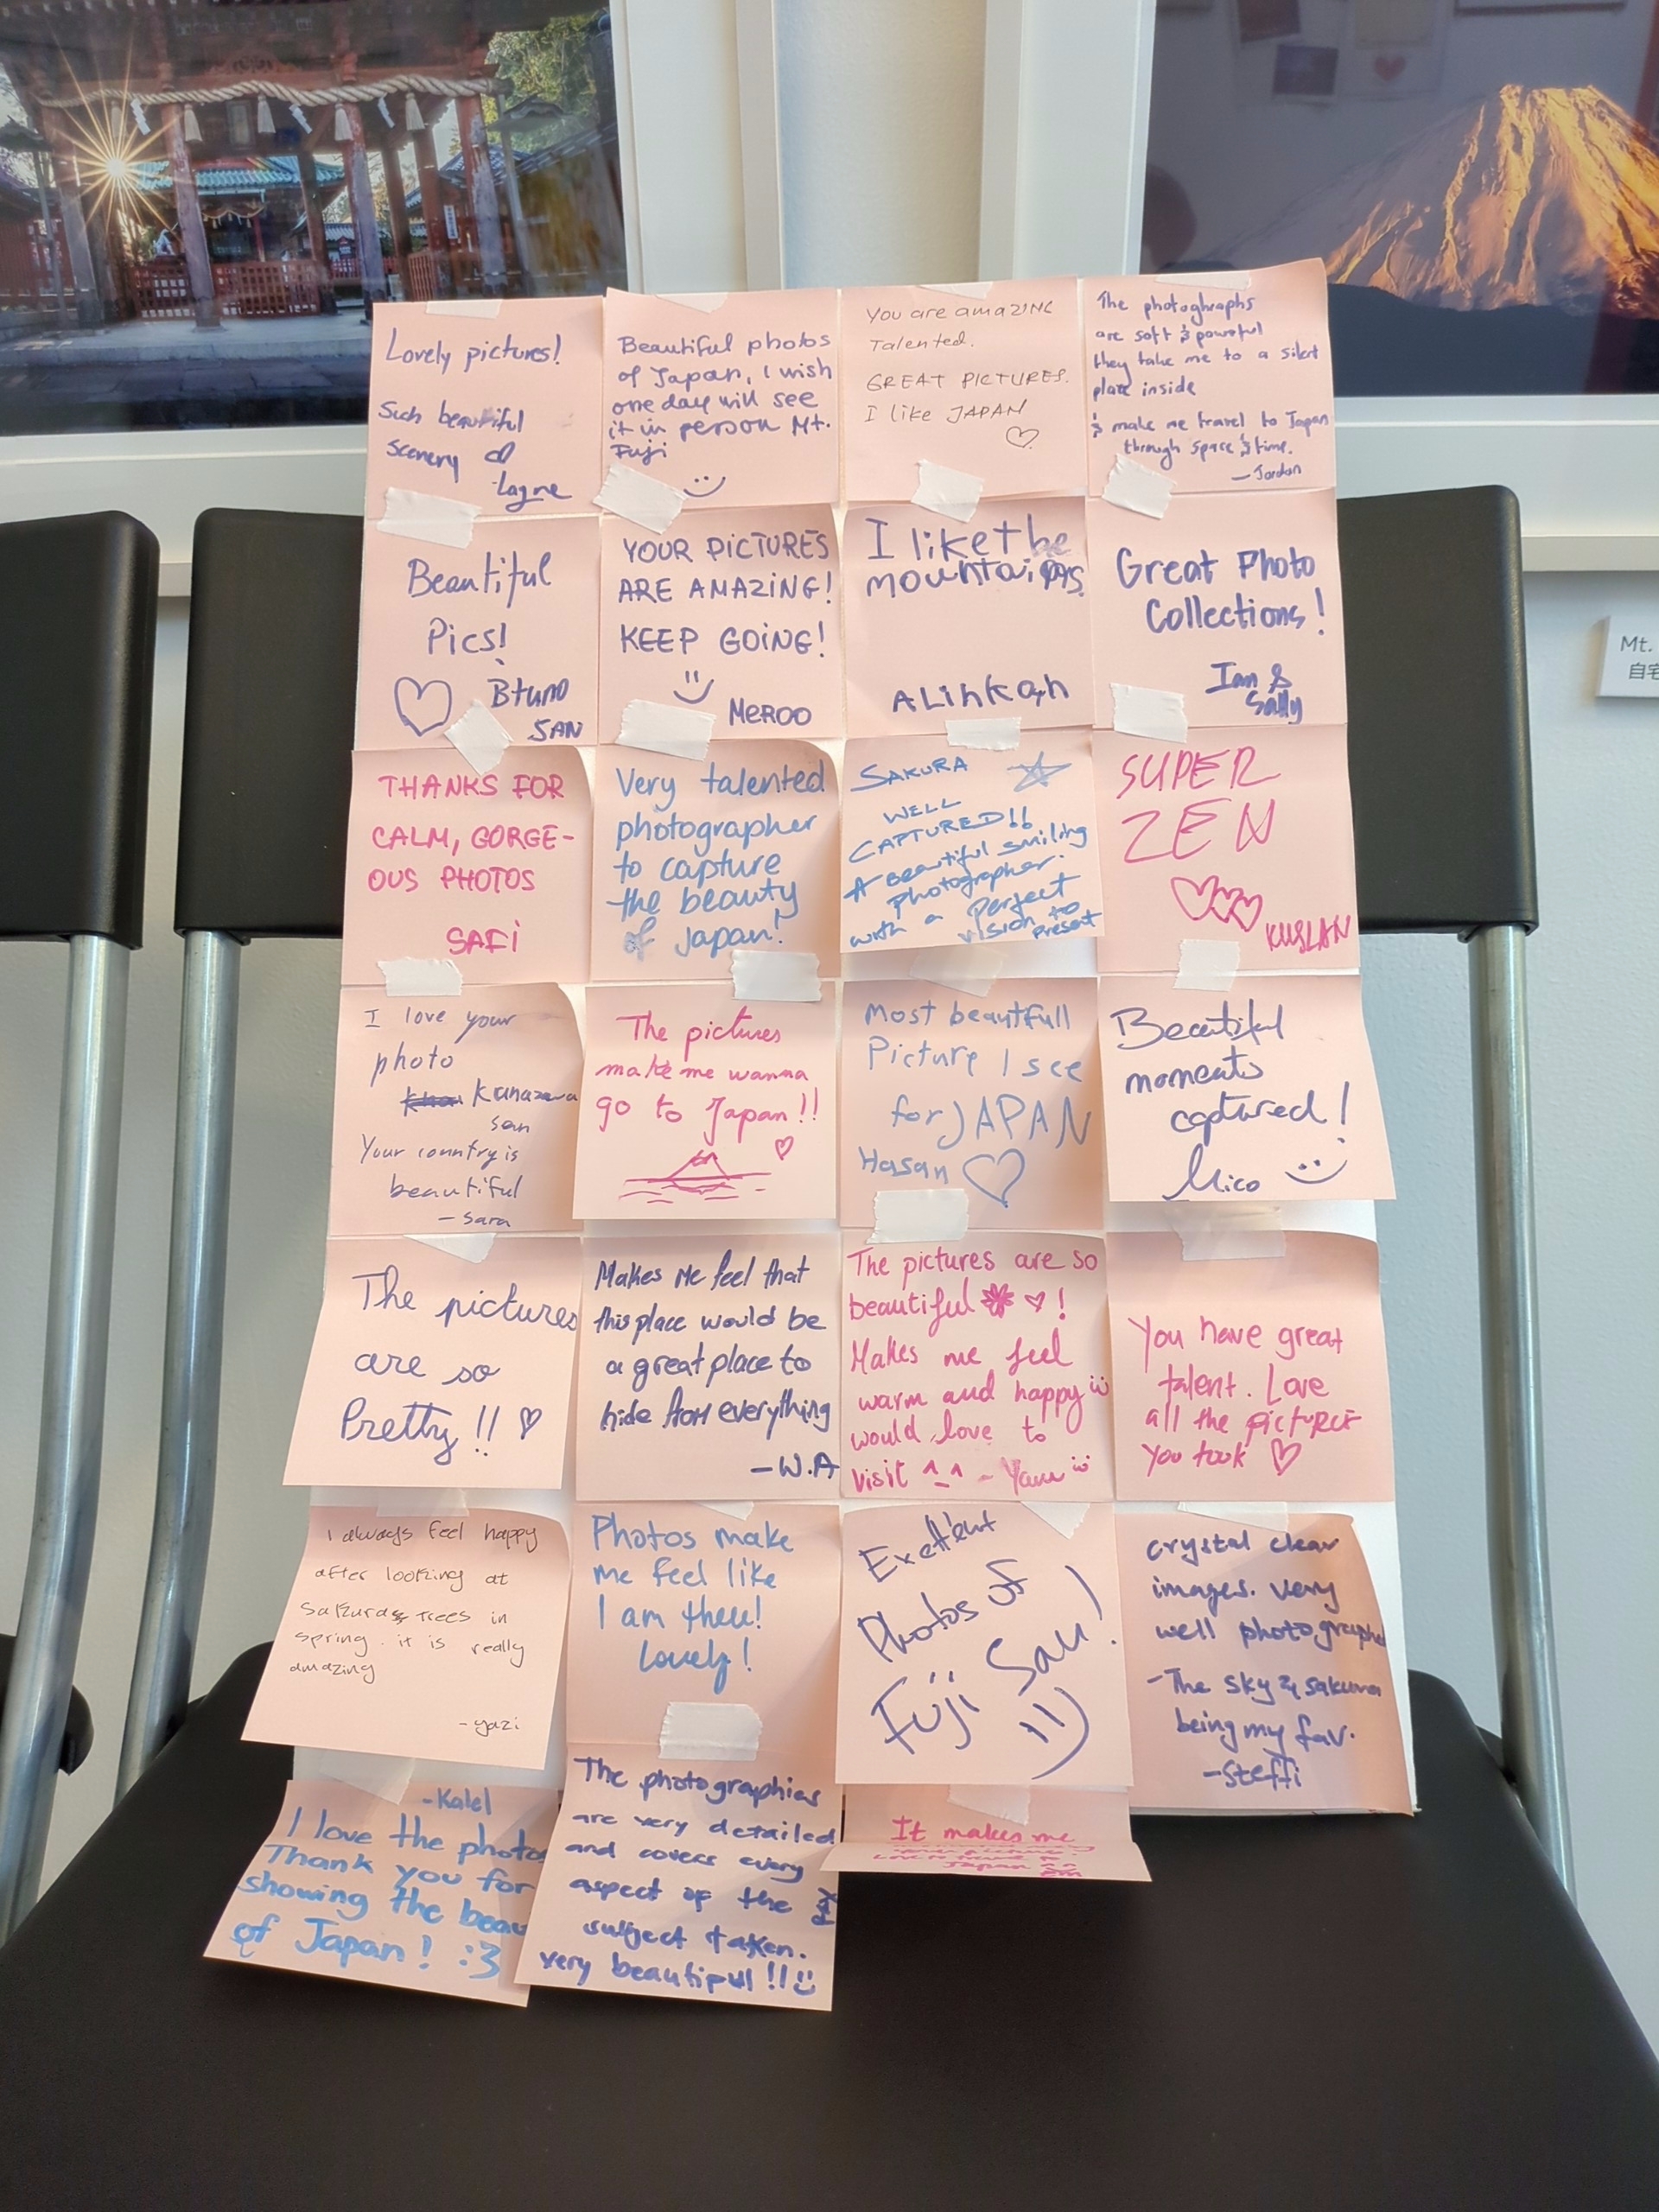 Lovely pictures!
Such beautiful
scenery
Beautiful photos
of Japan, I wish
one day will see
it in person Mt.
Fuji
You are amaZING
Talented.
GREAT PICTURES.
I like JAPAN
The photoghraphs
are soft & powerful
they take me to a silent
place inside
& make me travel to Japan
through space & time.
- Jordan
Beautiful
Pics!
SAN
YOUR PICTURES
ARE AMAZING!
KEEP GOING!
MEROO
I like the
mountains
ALinkah
Great Photo
Collections!
Ian &
Sally
THANKS FOR
CALM, GORGE-
OUS PHOTOS
SAFI
Very talented
photographer
to capture
the beauty
of Japan!
SAKURA
WELL
CAPTURED!!
A beautiful smiling
photographer.
with a perfect
vision to
present
SUPER
ZEN
KUSLAN
I love your
photo
Kanazawa
san
Your country is
beautiful
- Sara
The pictures
make me wanna
go to Japan!!
Most beautfull
Picture I see
for JAPAN
Hasan
Beautiful
moments
captured!
Mico
The pictures
are so
Pretty!!
Makes me feel that
this place would be
a great place to
hide from everything
- W.A
The pictures are so
beautiful !
Makes me feel
warm and happy
would love to
visit ^_^ -
You have great
talent. Love
all the pictures
you took
I always feel happy
after looking at
Sakura trees in
spring. it is really
amazing
- yazi
Photos make
me feel like
I am there!
Lovely!
Photos of
Fuji San!
crystal clear
images. very
well photographed
-The sky & sakura
being my fav.
-Steffi
-Kalel
I love the photos
Thank you for
showing the beau
of Japan! :3
The photographies
are very detailed
and covers every
aspect of the
subject taken.
very beautiful!!
It makes me
Japan
Mt.
自宅